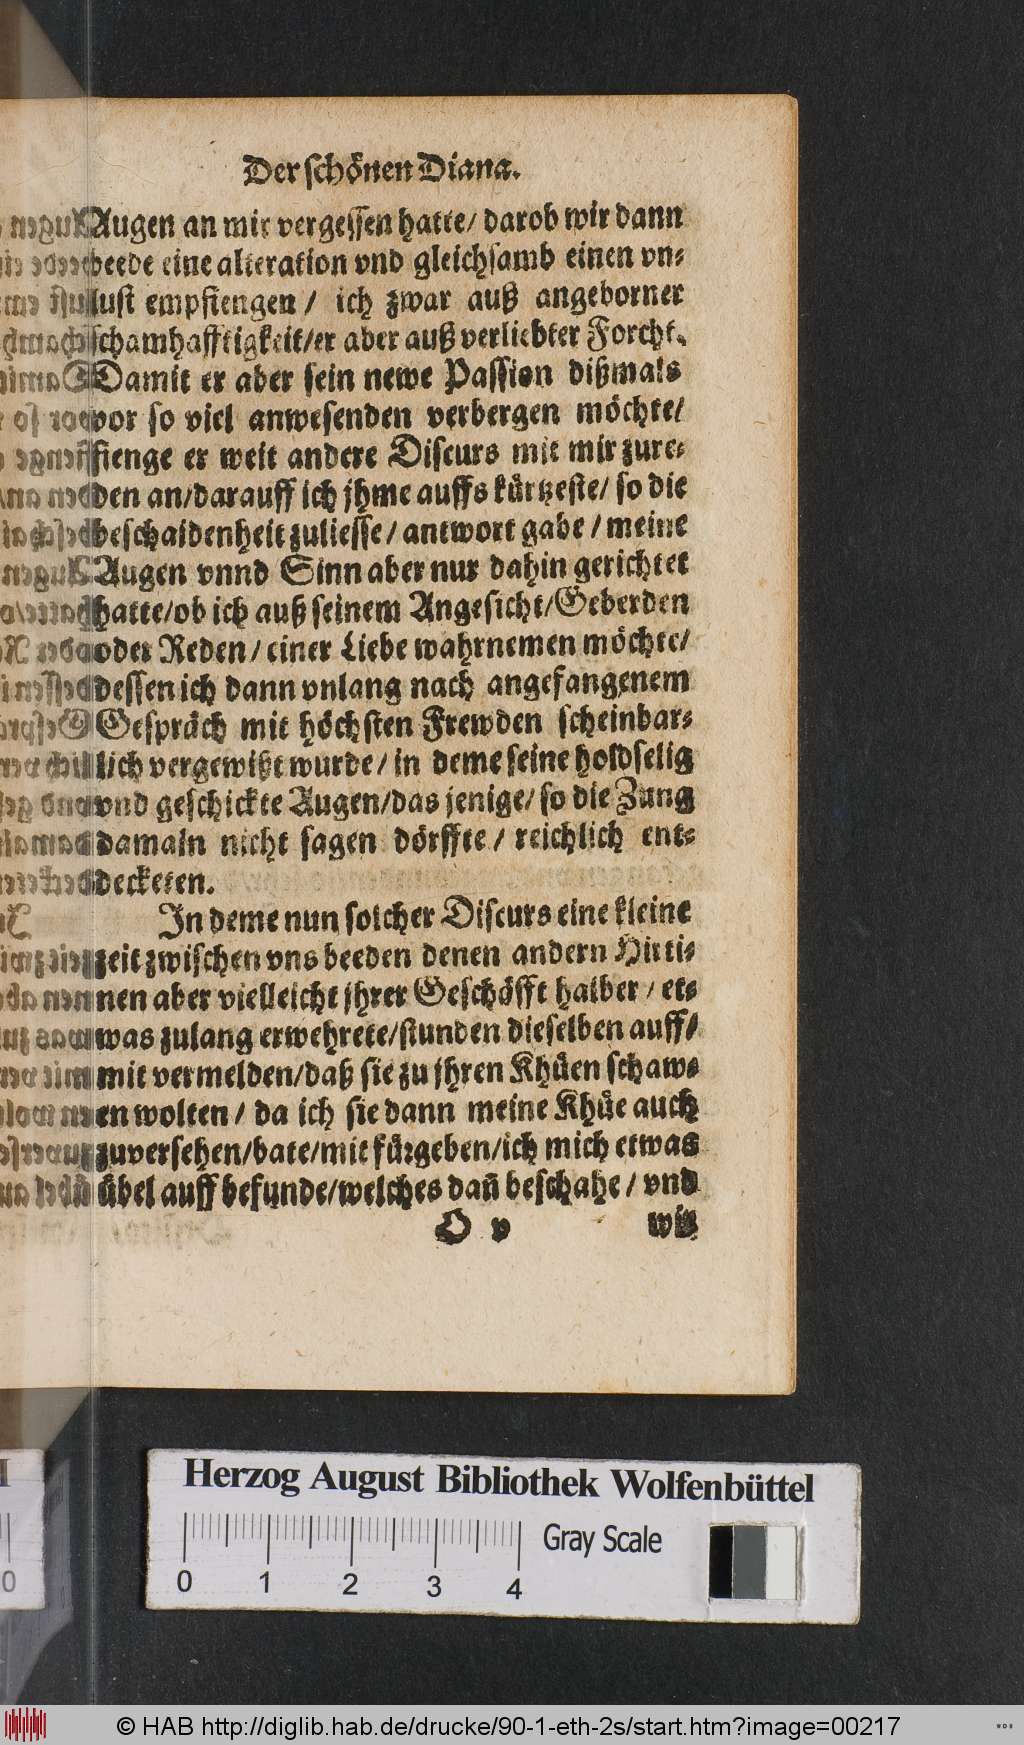 Der schönen Diana.
Augen an mir vergessen hatte/ darob wir dann
beede eine alteration vnd gleichsamb einen vn⸗
lust empfiengen/ ich zwar auß angeborner
schamhafftigkeit/er aber auß verliebter Forcht.
Damit er aber sein newe Passion dißmals
vor so viel anwesenden verbergen möchte/
fienge er weit andere Discurs mit mir zure⸗
den an/darauff ich jhme auffs kürtzeste/ so die
beschaidenheit zuliesse/ antwort gabe/ meine
Augen vnnd Sinn aber nur dahin gerichtet
hatte/ob ich auß seinem Angesicht/Geberden
oder Reden/ einer Liebe wahrnemen möchte/
dessen ich dann vnlang nach angefangenem
Gespräch mit höchsten Frewden scheinbar⸗
lich vergewißt wurde/ in deme seine holdselig
vnd geschickte Augen/das jenige/ so die Zung
damaln nicht sagen dörffte/ reichlich ent⸗
decketen.
In deme nun solcher Discurs eine kleine
zeit zwischen vns beeden denen andern Hirti⸗
nen aber vielleicht jhrer Geschöfft halber/ et⸗
was zulang erwehrete/stunden dieselben auff/
mit vermelden/daß sie zu jhren Khüen schaw⸗
en wolten/ da ich sie dann meine Khüe auch
zuversehen/bate/mit fürgeben/ich mich etwas
übel auff befunde/welches dañ beschahe/ vnd
O v wir
Herzog August Bibliothek Wolfenbüttel
Gray Scale
0 1 2 3 4
0
© HAB http://diglib.hab.de/drucke/90-1-eth-2s/start.htm?image=00217